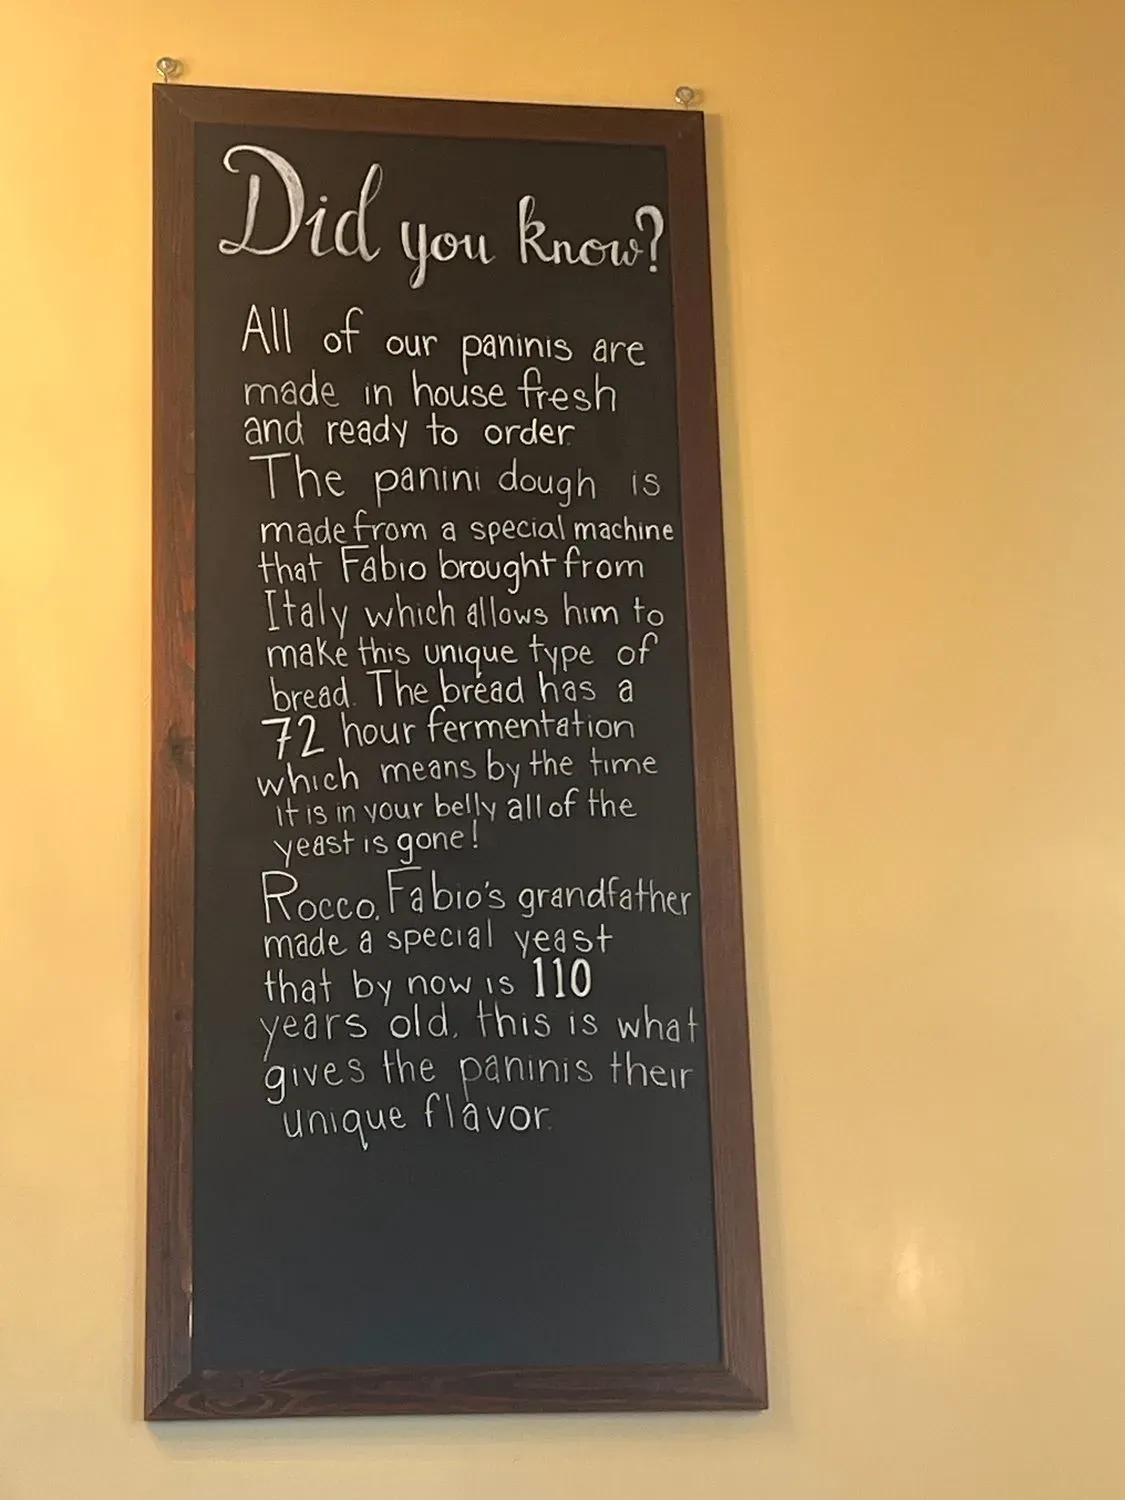 Did you know?
All of our paninis are
made in house fresh
and ready to order.
The panini dough is
made from a special machine
that Fabio brought from
Italy which allows him to
make this unique type of
bread. The bread has a
72 hour fermentation
which means by the time
it is in your belly all of the
yeast is gone!
Rocco, Fabio's grandfather
made a special yeast
that by now is 110
years old. this is what
gives the paninis their
unique flavor.